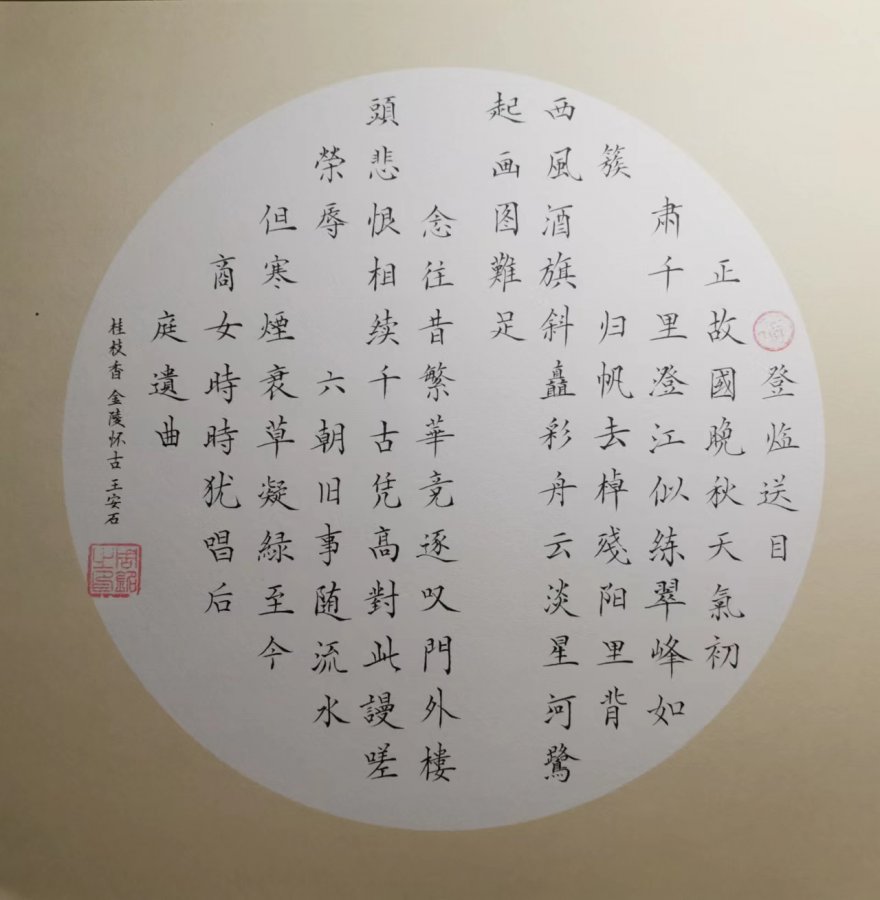 登临送目
正故國晚秋天氣初
肃千里澄江似练翠峰如
簇 归帆去棹残阳里背
西風酒旗斜矗彩舟云淡星河鷺
起画图難足
念往昔繁華竞逐叹門外樓
頭悲恨相续千古凭高對此謾嗟
榮辱 六朝旧事随流水
但寒煙衰草凝緑至今
商女時時犹唱后
庭遺曲
桂枝香 金陵怀古 王安石